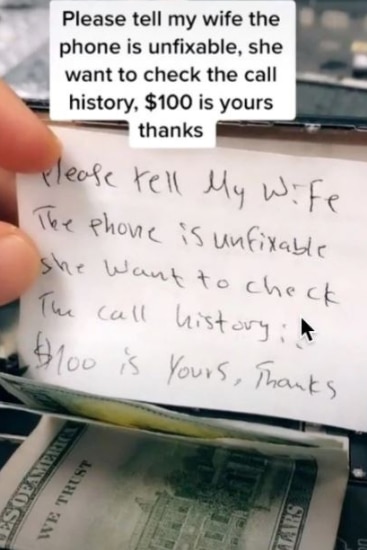 Please tell my wife the
phone is unfixable, she
want to check the call
history, $100 is yours
thanks
Please tell My Wife
The phone is unfixable
she want to check
The call history:
$100 is Yours, Thanks
WE TRUST